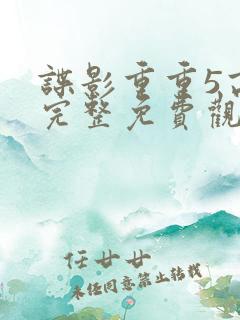 諜影重重5高
完整免費觀
任廿廿
未经同意禁止转载